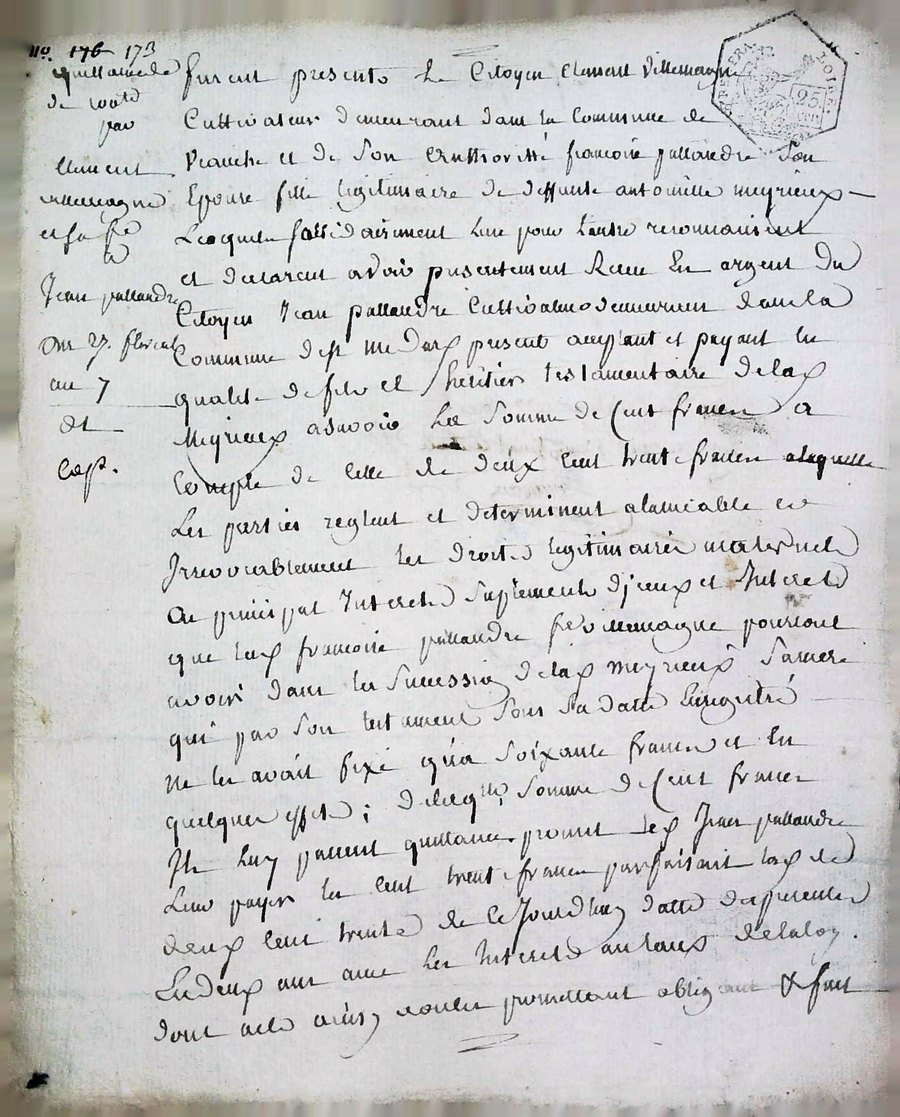 No. 176 173
quittance
de
par
Clement
villemagne
et sa fe
a
Jean pallandre
Du 27. floreal
an 7
et
Exp.
furent presents Le Citoyen Clement Villemagne
Cultivateur demeurant dans la Commune de
et de Son authorité francoise pallandre Son
Epouse fille legitimaire de deffunte antoinette meyrieux
Lesquels sollidairement l'un pour l'autre reconnaissent
et declarent avoir presentement Recu En argent du
Citoyen Jean pallandre Cultivateur demeurant dans la
Commune de st medard present acceptant et payant En
qualité de fils et heritier testamentaire de lad
Meyrieux assavoir La Somme de Cent francs a
Compte de Celle de deux Cent trente francs a laquelle
Les parties reglent et determinent a lamiable et
Irrevocablement les droits legitimaires maternels
En principal Interets Suplements d'iceux et Interets
que lad francoise pallandre fe villemagne pourrait
avoir dans la Succession de lad meyrieux Sa mere
qui par Son testament Sous Sa datte Enregistré
ne les avait fixé qua Soixante francs et En
quelques effets ; de laqlle Somme de Cent francs
Ils Luy passent quittance. promet led Jean pallandre
Leur payer les Cent trente francs parfaisant lesd
deux Cent trente de Ce Jourdhuy datte des presentes
En deux ans avec Les Interets au taux de la loy.
Dont acte ainsy voulu promettant obligeant & fait
LOIRE
25